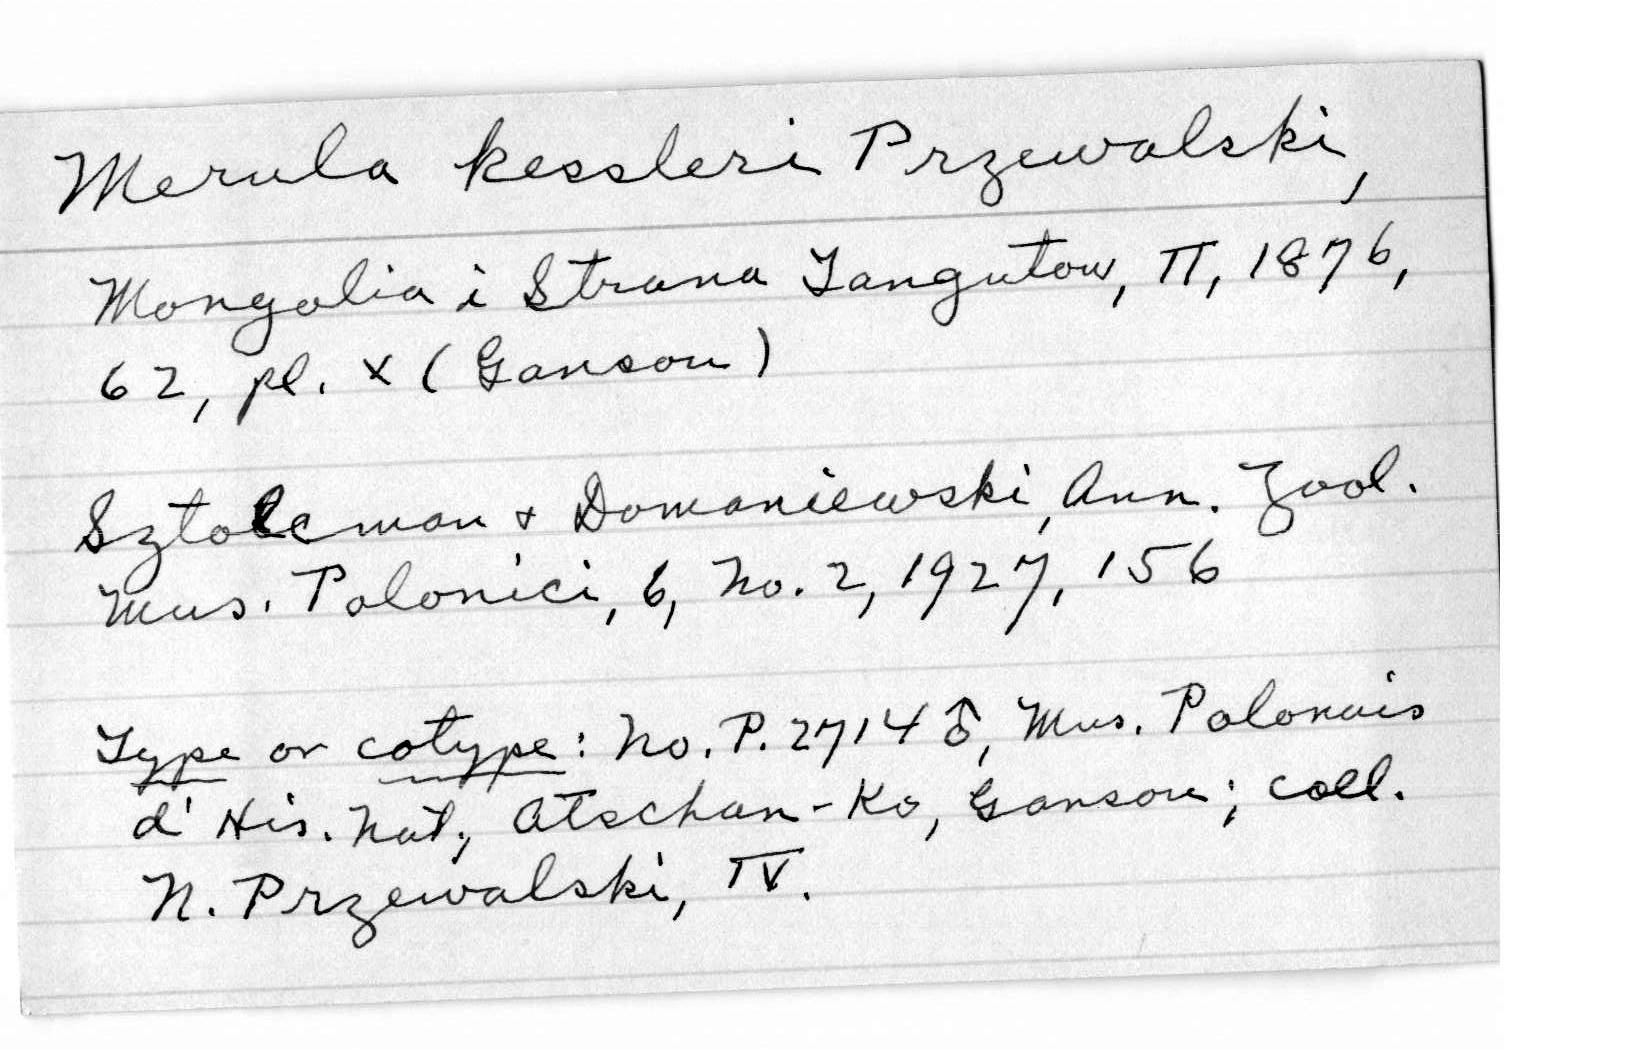 Merula kessleri Przewalski,
Mongolia i Strana Tangutow, II, 1876,
62, pl. X (Gansou)
Sztolcman & Domaniewski, Ann. Zool.
Mus. Polonici, 6, No. 2, 1927, 156
Type or cotype: No. P. 2714 ♂, Mus. Polonais
d' His. Nat., Atschan-Ko, Gansou; coll.
N. Przewalski, IV.